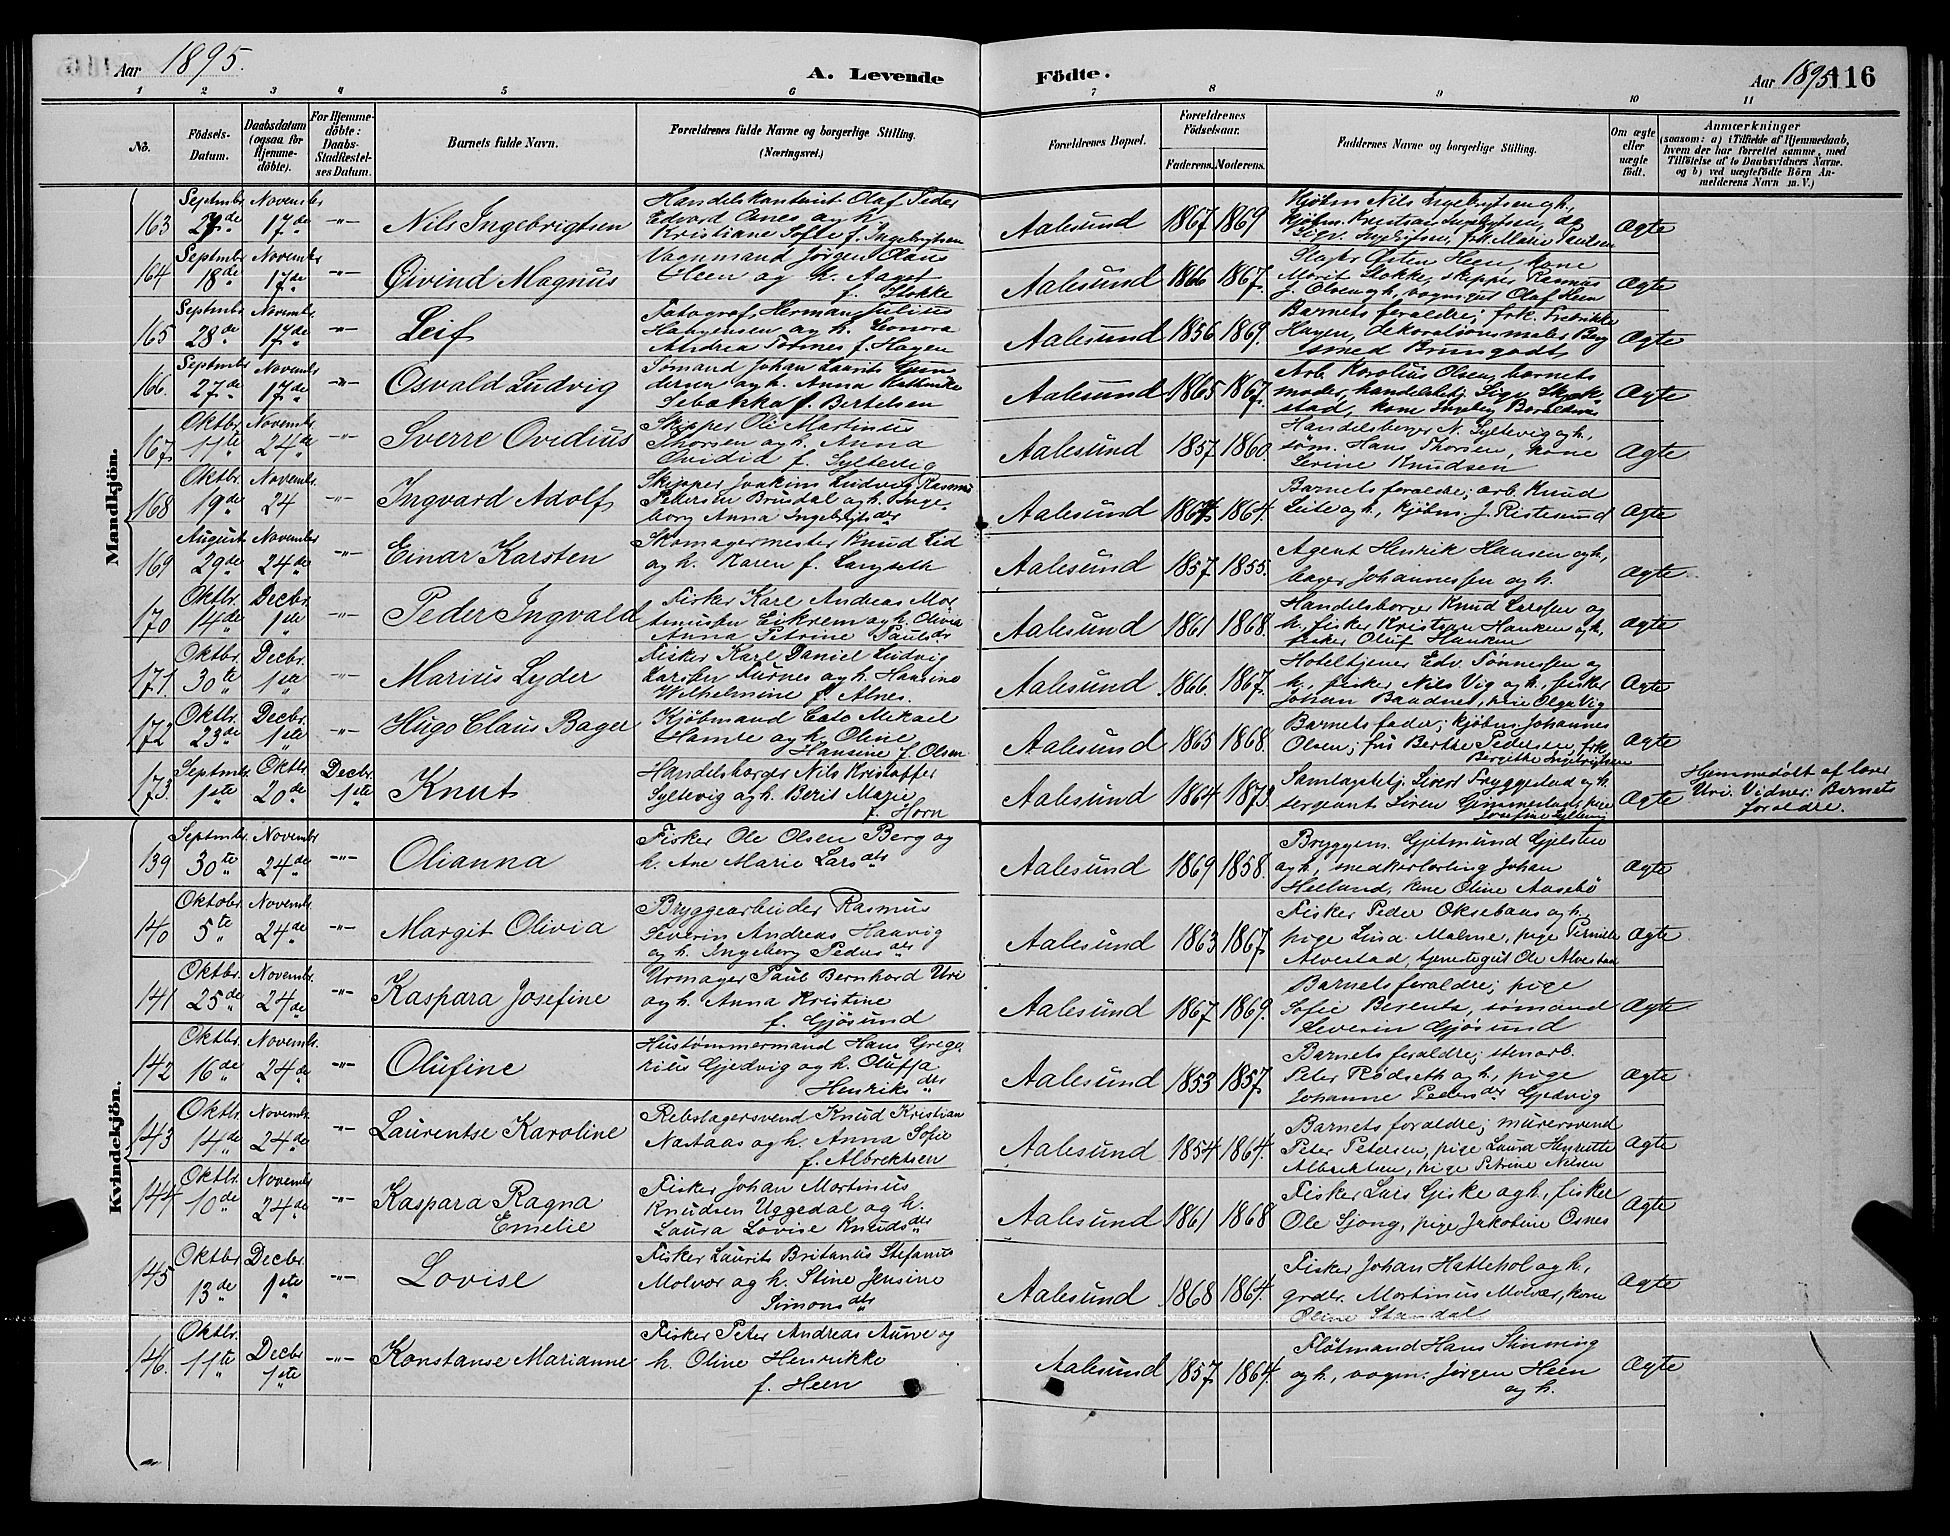 Aar 1895.
A. Levende Födte.
Aar 1895 116
1 2 3 4 5 6 7 8 9 10 11
No.
Födsels-Datum.
Daabsdatum (ogsaa for Hjemmedöbte).
For Hjemmedöbte: Daabs-Stadfestelses Datum.
Barnets fulde Navn.
Forældrenes fulde Navne og borgerlige Stilling.
(Næringsvei.)
Forældrenes Bopæl.
Forældrenes Födselsaar.
Faderens. Moderens.
Faddernes Navne og borgerlige Stilling.
Om ægte eller uægte födt.
Anmærkninger
(saasom: a) i Tilfælde af Hjemmedaab,
hvem der har forrettet samme, med
Tilföielse af to Daabsvidners Navne.
og b) ved uægtefödte Börn Anmelderens Navn m. V.)
Mandkjön.
163 Septmbr Novembr 17de -"- Nils Ingebrigtsen
Handelskontorist Olaf Peder
Edvard Oanes og h.
Kristiane Sofie f. Ingebrigtsen
Aalesund 1867 1869
Kjøbm Nils Ingebrigtsen og h.
Ægte
164 Septmbr 18de Novembr 17de -"- Øivind Magnus
Vognmand Jörgen Olaus
Heen og h. Aagot
f. Stokke
Aalesund 1866 1867.
Marit Stokke, skipper Rasmus
J. Olsen og h., vogm. gut Olaf Heen
Ægte
165 Septmbr 28de Novembr 17de -"- Leif
Fotograf Herman Julius
Andrea Tornes f. Hagen
Aalesund 1856 1869.
Barnets forældre; frk. Fredrikke
Hagen, dekorationsmaler
Ægte
166. Septmbr 27de Novembr 17de -"- Osvald Ludvig
Sømand Johan Laurits Gundersen og h. Anna Kathinka
f. Bertelsen
Aalesund 1865 1867.
Arb. Karolius Olsen, barnets
moder, handelsbetj.
Ægte
167 Oktbr 11te Novembr. 24de -"- Sverre Ovidius
Skipper Ole Martinus
Thorsen og h. Anna
Ovidid f. Syltevig
Aalesund 1857 1860.
Handelsborger N. Syltevig og h.,
søm. Hans Thorsen, kone
Serine Knudsen
Ægte
168 Oktbr 19de Novembr 24 -"- Ingvard Adolf
Skipper Joakim Ludvig Rasmus
Petersen Brusdal og h. Ingeborg Anna Ingebrigtsdtr
Aalesund 1864.
Barnets forældre; arb. Knud
Leite og h., kjøbm. J. Ristesund
Ægte
169 August 29de Novembr 24de -"- Einar Karsten
Skomagermester Knud Lid
og h. Karen f. Langseth
Aalesund 1857 1855.
Agent Henrik Hansen og h.
bager Johannessen og h.
Ægte
170 Oktbr. 14de Decbr. 1ste -"- Peder Ingvald
Fisker Karl Andreas
Eikrem og h. Olivia
Anna Petrine Paulsdtr
Aalesund 1861 1868.
Handelsborger Knud Larssen og
h., fisker Kristian Hanken og h.,
fisker Oluf Hanken
Ægte
171. Oktbr. 30te Decbr. 1ste -"- Marius Lyder
Fisker Karl Daniel Ludvig
Larssen Furnes og h. Hansine
Wilhelmine f. Alnes.
Aalesund 1866. 1867.
Hoteltjener Edv. Tønnessen og
h., fisker Nils Vig og h., fisker
Johan Olga Vig
Ægte
172 Oktbr. 23de Decbr. 1ste -"- Hugo Claus Bager
Kjøbmand Cato Mikael
Hamre og h. Oline
Hansine f. Olsen
Aalesund 1865 1868.
Barnets fader; kjøbm. Johannes
Olsen; fru Berthe Pedersen, frk.
Bergithe Ingebrigtsen
Ægte
173. Septmbr. 1ste Oktbr. 20de Decbr. 1ste Knut
Handelsborger Nils Kristoffer
Syltevig og h. Berit Marie
f. Horn
Aalesund 1864 1873.
sergeant Søren Gimmestad, pige
Josefine Syltevig
Ægte
Hjemmedøbt af lærer
Uri. Vidner: Barnets
forældre.
Kvindekjön.
139 Septmbr. 30te Novembr 24de -"- Olianna
Fisker Ole Olsen Berg og
h. Ane Marie Larsdtr
Aalesund 1869 1858.
Bryggem. Gjetmund Gjelsten
og h., snedkerlærling Johan
Helland, kone Oline Aasebö
Ægte
140 Oktobr. 5te Novembr. 24de -"- Margit Olivia
Bryggearbeider Rasmus
Severin Andreas Haavig
og h. Ingeborg Pedersdtr
Aalesund 1863 1867.
Fisker Peder Oksebaas og h.,
pige Lina Malme, pige Pernille
Alvestad, tjenetegut Ole Alvestad
Ægte
141 Oktbr. 25de Novembr. 24de -"- Kaspara Josefine
Urmager Paul Bernhard Uri
og h. Anna Kristine
f. Gjösund
Aalesund 1867 1869.
Barnets forældre; pige
Sofie Berents, sømand
Severin Gjösund
Ægte
142 Oktbr. 16de Novembr. 24de -"- Olufine
Hustømmermand Hans Gregorius Gjedvig og h. Oluffa
Henriksdtr
Aalesund 1853 1857.
Barnets forældre; stenarb.
Peter Rødseth og h., pige
Johanne Pedersdtr Gjedvig
Ægte
143 Oktbr. 14de Novembr. 24de -"- Laurentse Karoline
Rebslagersvend Knud Kristian
Nastaas og h. Anna Sofie
f. Albrektsen
Aalesund 1854 1864.
Barnets forældre; murersvend
Peter Petersen, pige Laura Henriette
Albrektsen, pige Petrine Nilsen
Ægte
144 Oktbr. 10de Novembr 24de -"- Kaspara Ragna
Emelie
Fisker Johan Martinus
Knudsen Uggedal og h.
Laura Lovise Knudsdtr
Aalesund 1861 1868
Fisker Lars Giske og h., fisker
Ole Sjong, pige Jakobine Osnes
Ægte
145 Oktbr 13de Decbr. 1ste -"- Lovise
Fisker Laurits Britanus Stefanus
Molvær og h. Stine Jensine
Simonsdtr
Aalesund 1868 1864.
Fisker Johan Hattehol og h.,
grdbr. Mortinus Molvær, kone
Oline Standal
Ægte
146. Oktbr. 11te Decbr 1ste -"- Konstanse Marianne
Fisker Peter Andreas Aurve og
h. Oline Henrikke
f. Heen
Aalesund 1857 1864.
Fløtmand Hans Slinning
og h., vogm. Jørgen Heen
og h.
Ægte